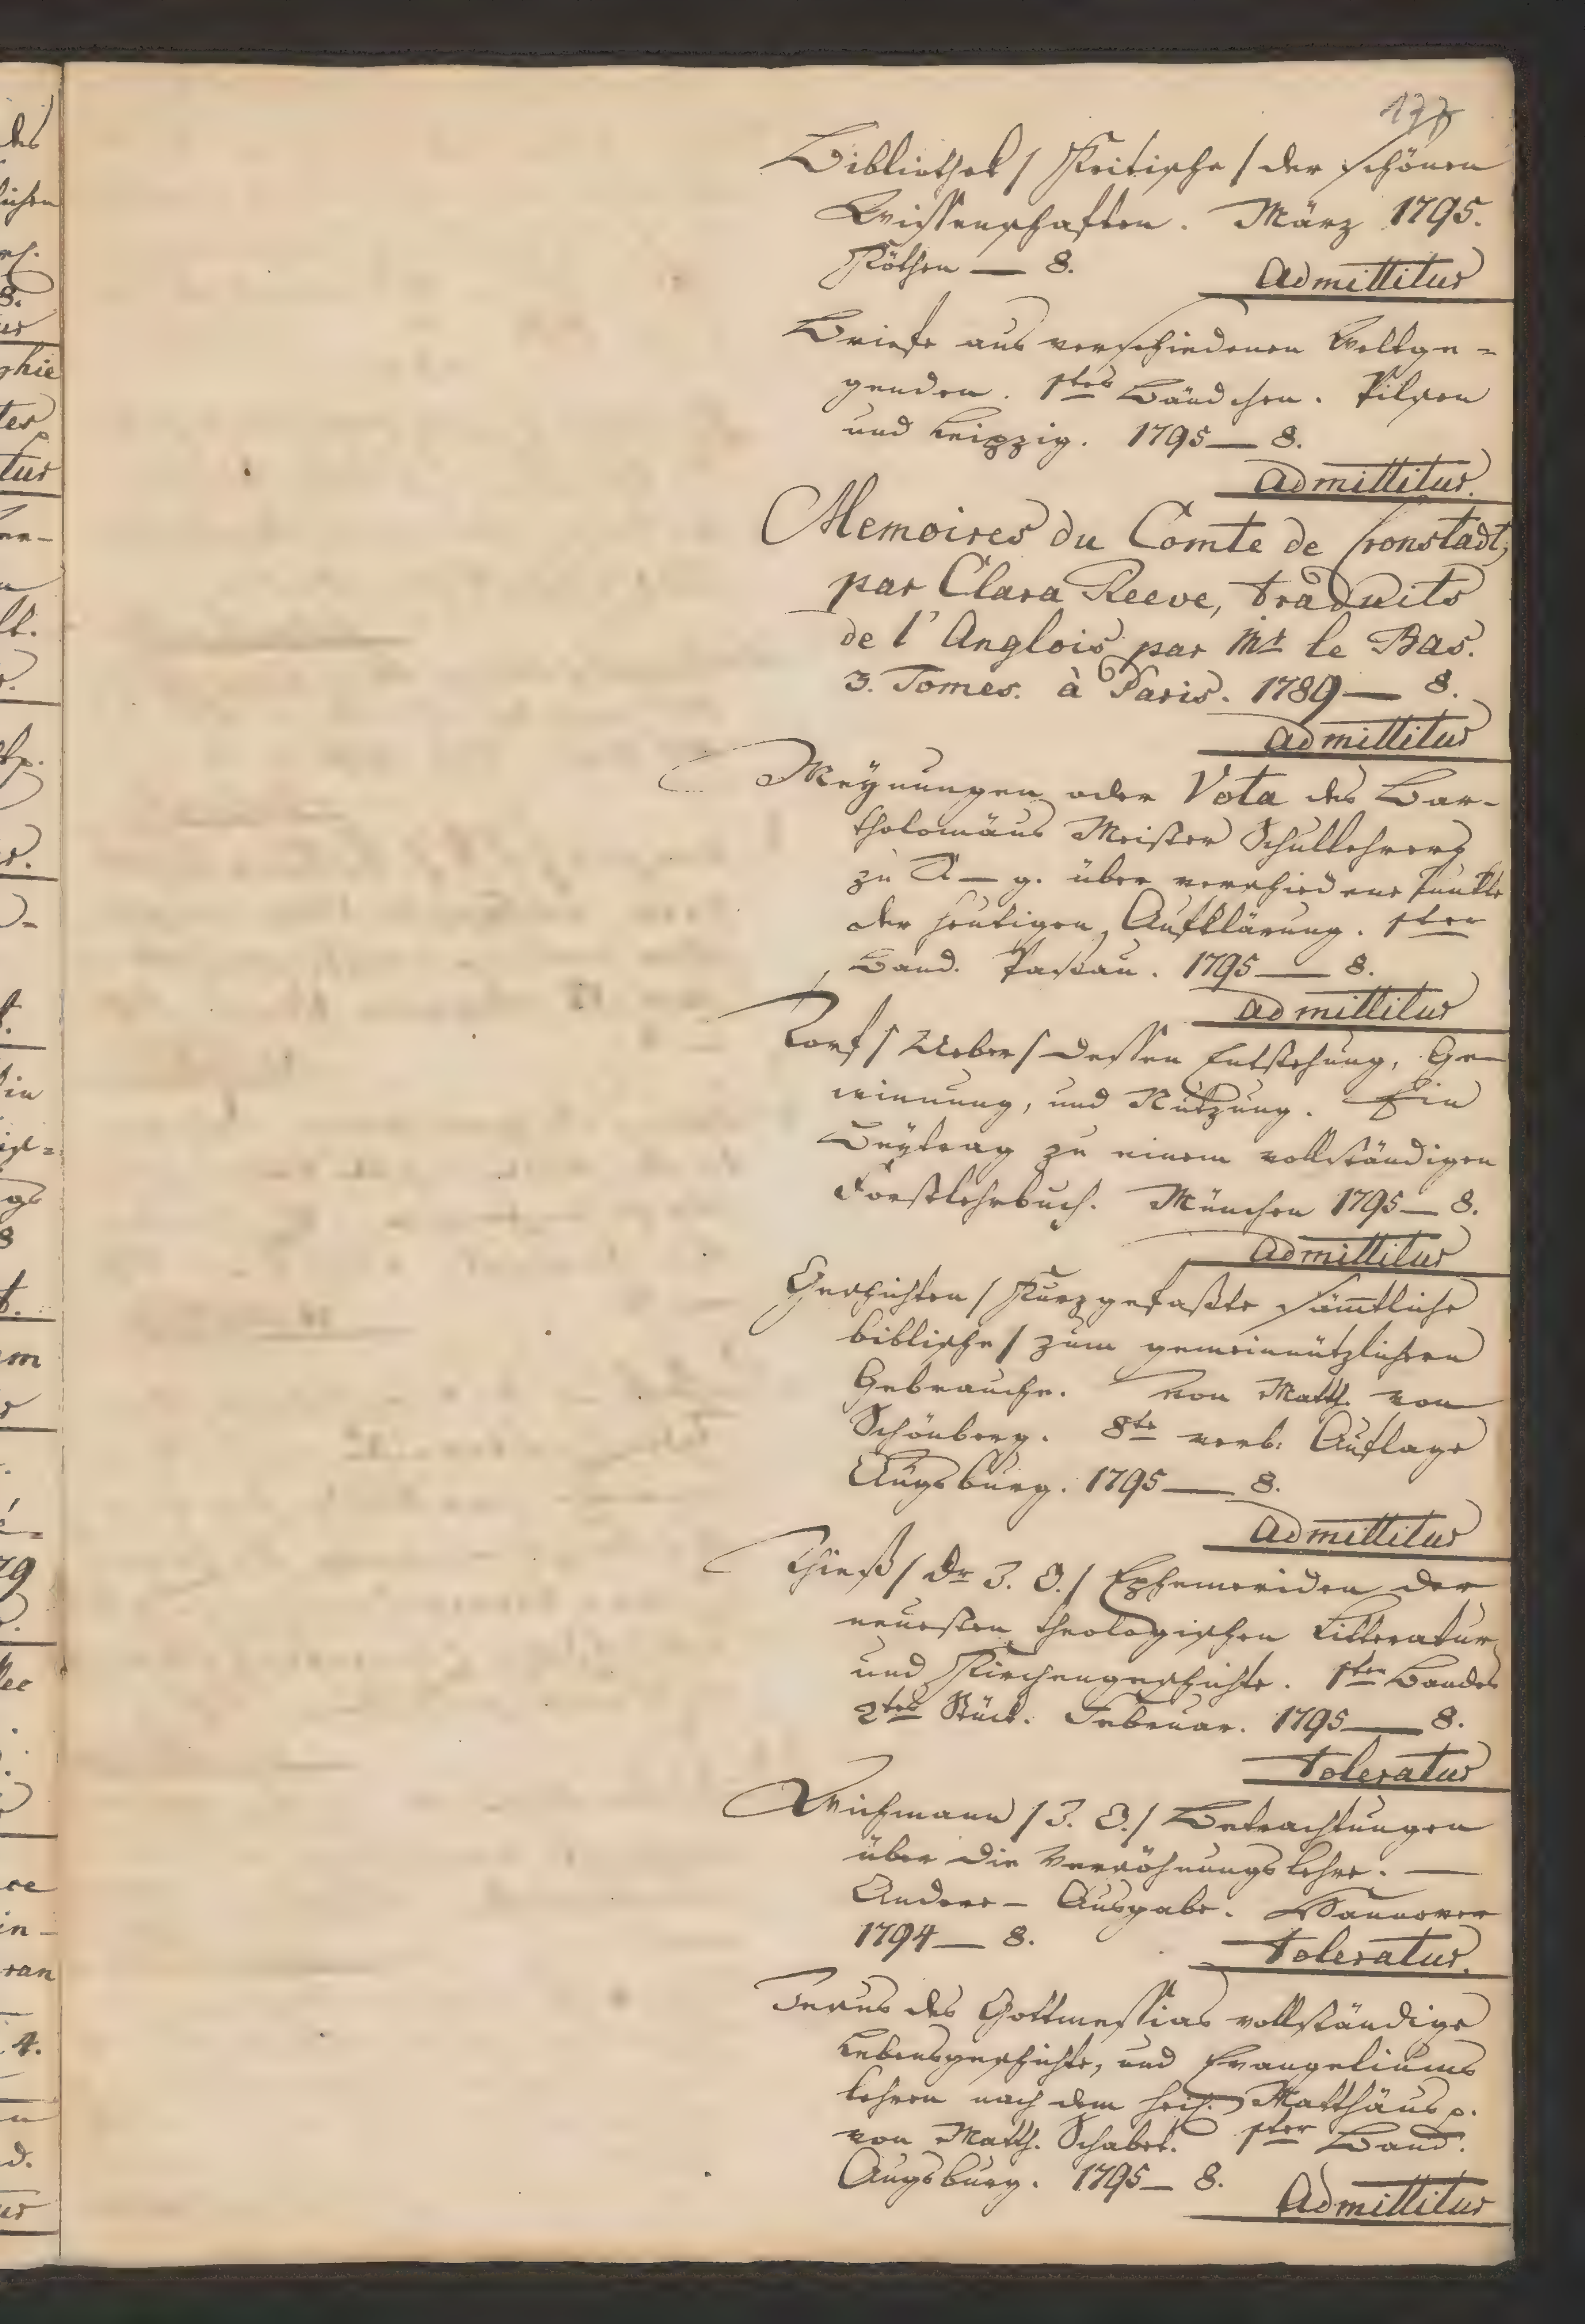 177
Bibliothek / Kritische / der schönen
Wissenschaften. März 1795.
Köthen — 8.
Admittitur
Briefe aus verschiedenen Weltge=
genden. 1tes Bändchen. Pilsen
und Leipzig. 1795 — 8.
Admittitur.
Memoires du Comte de Cronstadt,
par Clara Reeve, traduits
de l'Anglois par Mr le Bas.
3. Tomes. à Paris. 1789 — 8.
Admittitur
Meÿnungen oder Vota des Bar-
tholomäus Meister Schullehrers
zu A — g. über verschiedene Punkte
der heutigen Aufklärung. 1ter
Band. Passau. 1795 — 8.
Admittitur
Torf / Ueber / dessen Entstehung, Ge-
winnung, und Nutzung. Ein
Beÿtrag zu einem vollständigen
Forstlehrbuch. München 1795 — 8.
Admittitur
Geschichten / Kurzgefaßte sämtliche
biblische / zum gemeinnützlichern
Gebrauche. Von Matth. von
Schönberg. 8te verb. Auflage
Augsburg. 1795 — 8.
Admittitur
Thieß / Dr J. O. / Ephemeriden der
neuesten theologischen Litteratur
und Kirchengeschichte. 1ten Bandes
2tes Stück. Februar. 1795 — 8.
Toleratur
Wichmann / J. O. / Betrachtungen
über die Versöhnungslehre. —
Andere — Ausgabe. Hannover
1794 — 8.
Toleratur.
Jesus des Gottmessias vollständige
Lebensgeschichte, und Evangeliums
lehren nach dem heil. Matthäus p.
von Matth. Schabel. 1ter Band.
Augsburg. 1795 — 8.
Admittitur